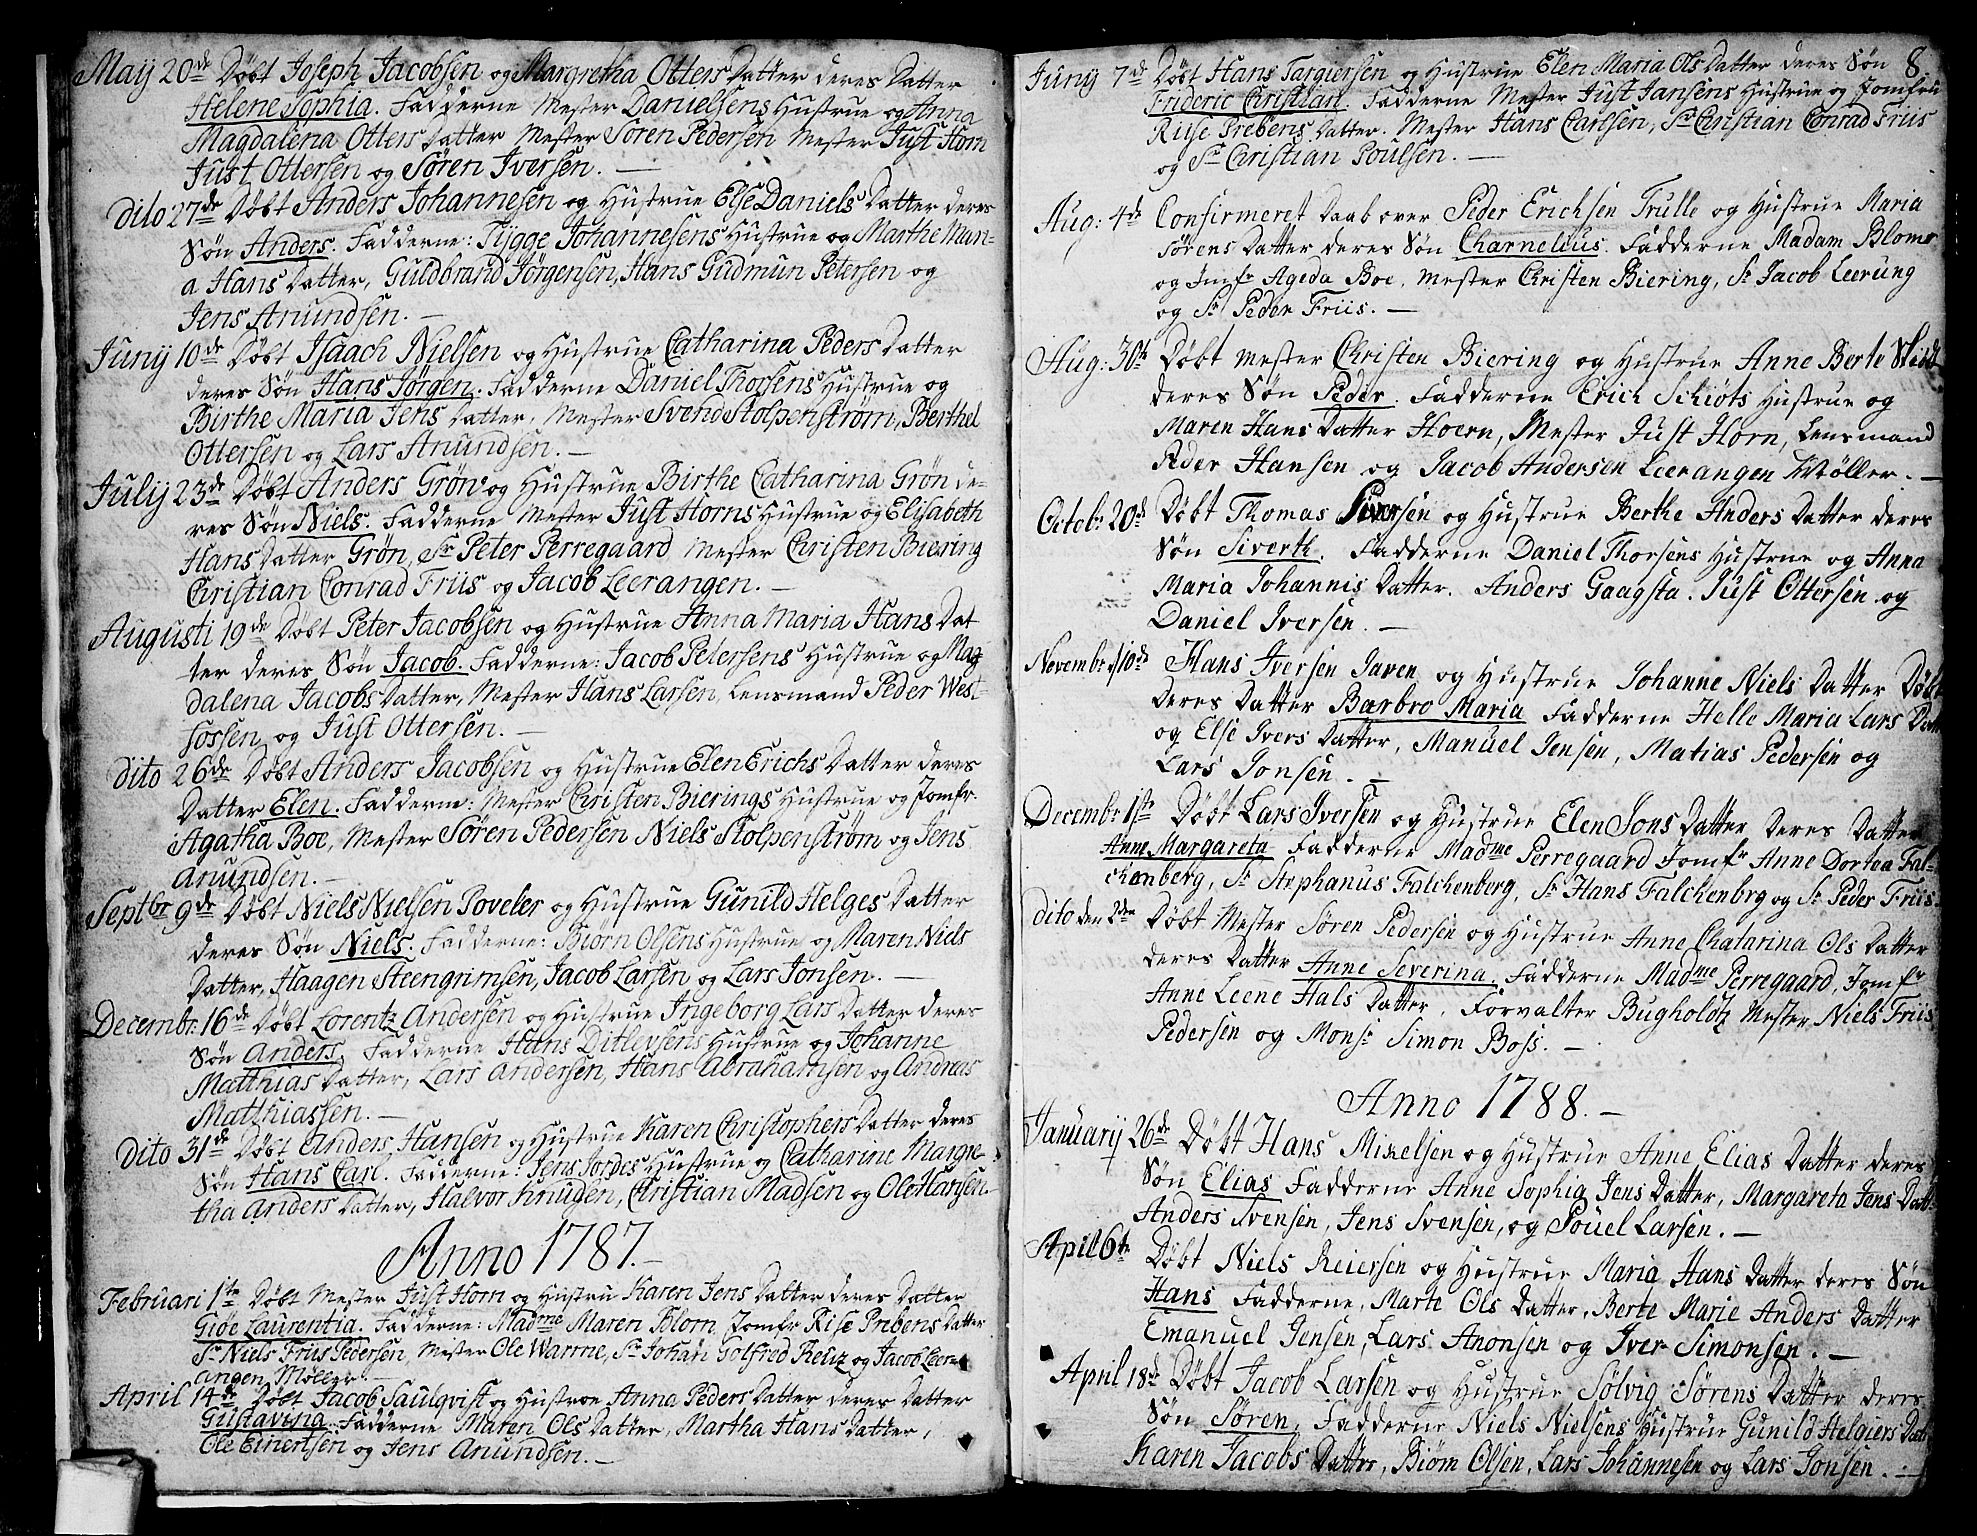 Maij 20de Døbt Joseph Jacobsen og Margretha Otters Datter deres Datter
Helene Sophia. Fadderne Mester Danielsens Hustrue og Anna
Magdalena Otters Datter Mester Sören Pedersen Mester Just Horn
Just Ottersen og Søren Iversen. —
dito 27de Døbt Anders Johannesen og Hustrue Else Daniels Datter deres
Søn Anders. Fadderne: Tÿgge Johannesens Hustrue og Marthe Mari-
a Hans Datter, Guldbrand Jörgensen, Hans Gudmun Petersen og
Jens Anundsen. —
Juny 10de Døbt Isaach Nielsen og Hustrue Catharina Peders Datter
deres Søn Hans Jörgen. Fadderne Daniel Thorsens Hustrue og
Birthe Maria Jens Datter, Mester Svend Stolpenstrøm, Berthel
Ottersen og Lars Anundsen. —
Julij 23de Døbt Anders Grön og Hustrue Birthe Catharina Grön de-
res Søn Niels. Fadderne Mester Just Horns Hustrue og Elisabeth
Hans Datter Grön, Sr Peter Perregaard Mester Christen Biering
Christian Conrad Friis og Jacob Leerangen. —
Augusti 19de Døbt Peter Jacobsen og Hustrue Anna Maria Hans Dat
ter deres Søn Jacob. Fadderne: Jacob Petersens Hustrue og Mag
dalena Jacobs Datter, Mester Hans Larsen, Lensmand Peder West-
fossen og Just Ottersen. —
dito 26de Døbt Anders Jacobsen og Hustrue Elen Erichs Datter deres
Datter Elen. Fadderne: Mester Christen Bierings Hustrue og Jomfr.
Agatha Boe, Mester Søren Pedersen Niels Stolpenström og Jens
Anundsen. —
Septbr 9de Døbt Niels Nielsen Poveler og Hustrue Gunild Helges Datter
deres Søn Niels. Fadderne: Biörn Olsens Hustrue og Maren Niels
Datter, Haagen Steengrimsen, Jacob Larsen og Lars Jonsen. —
Decembr: 16de Døbt Lorentz Andersen og Hustrue Ingeborg Lars Datter deres
Søn Anders. Fadderne Hans Ditlevsens Hustrue og Johanne
Matthias Datter, Lars Andersen, Hans Abrahamsen og Andreas
Matthiassen. —
dito 31de Døbt Anders Hansen og Hustrue Karen Christophers Datter deres
Søn Hans Carl. Fadderne: Jens Jordes Hustrue og Catharine Margre
tha Anders Datter, Halvor Knudsen, Christian Madsen og Ole Hansen.
Anno 1787. —
Februari 1te Døbt Mester Just Horn og Hustru Karen Jens Datter deres Datter
Giöe Laurentia. Fadderne: Madme Maren Blom, Jomfr Rise Prebens Datter
Sr Niels Friis Pedersen, Mester Ole Warme, Sr Johan Gotfred Reuz og Jacob Leer-
angen Møller. —
April 14de Døbt Jacob Saulqvist og Hustroe Anna Peders Datter deres Datter
Gustaviana. Fadderne Maren Ols Datter, Martha Hans Datter,
Ole Einertsen og Jens Anundsen. —
8
Juny 7de Døbt Hans Targiersen og Hustrue Elen Maria Ols Datter deres Søn
Frideric Christian. Fadderne Mester Just Jansens Hustrue og Jomfru
Riise Prebens Datter. Mester Hans Carlsen, Sr Christian Conrad Friis
og Sr Christian Poulsen. —
Aug: 4de Confirmeret Daab over Peder Erichsen Trulle og Hustrue Maria
Sörens Datter deres Søn Charnelius. Fadderne Madam Bloms
og Jmfr Ageda Boe, Mester Christen Biering, Sr Jacob Leerung
og Sr Peder Friis. —
Aug: 30te Døbt Mester Christen Biering og Hustrue Anne Berte
deres Søn Peder. Fadderne Erich Schiöts Hustrue og
Maren Hans Datter Hoern, Mester Just Horn, Lensmand
Peder Hansen og Jacob Andersen Leerangen Møller. —
Octobr 20de Døbt Thomas Siversen og Hustrue Berthe Anders Datter deres
Søn Siverth. Fadderne Daniel Thorsens Hustrue og Anna
Maria Johannis Datter. Anders Gaagsta. Just Ottersen og
Daniel Iversen. —
Novembr: 10de Hans Iversen Jaren og Hustrue Johanne Niels Datter Døbt
deres Datter Barbro Maria Fadderne Helle Maria Lars Datt
og Else Ivers Datter, Manuel Jensen, Matias Pedersen og
Lars Jonsen. —
Decembr 1ste Døbt Lars Iversen og Hustrue Elen Jons Datter deres Datter
Anne Margareta Fadderne Madme Perregaard Jomfr Anne Dortea Fal-
chenberg, Sr Stephanus Falchenberg, Sr Hans Falchenbrg og Sr Peder Friis.
dito den 2den Døbt Mester Sören Pedersen og Hustrue Anne Chatarina Ols Datter
deres Datter Anne Severina. Fadderne Madme Perregaard, Jomfr
Anne Leene Hals Datter, Forvalter Bugholdt Mester Niels Friis
Pedersen og Monsr Simon Boss. —
Anno 1788. —
Januarij 26de Døbt Hans Mikelsen og Hustrue Anne Elias Datter deres
Søn Elias Fadderne Anne Sophia Jens Datter, Margareta Jens Datt
Anders Svensen, Jens Svensen, og Pouel Larsen. —
April 6te Døbt Niels Reiersen og Hustrue Maria Hans Datter deres Søn
Hans Fadderne, Marte Ols Datter, Berte Marie Anders Datter
Emanuel Jensen, Lars Anonsen og Iver Simonsen. —
April 18de Døbt Jacob Larsen og Hustrue Sölvig Sörens Datter deres
Søn Sören, Fadderne Niels Nielsens Hustrue Gunild Helgiers Datt
Karen Jacobs Datter, Biörn Olsen, Lars Johannesen og Lars Jonsen. —